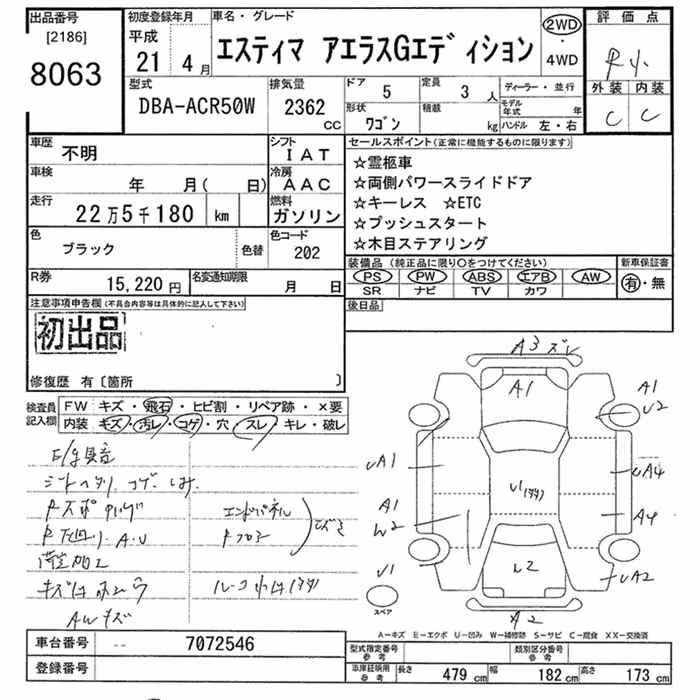 出品番号
[2186]
8063
初度登録年月
平成
21 4月
車名・グレード
エスティマ アエラスGエディション
2WD
・
4WD
評価点
R
外装 内装
C C
型式
DBA-ACR50W
排気量
2362
CC
ドア 5
定員 3 人
形状 ワゴン
積載 kg
ディーラー・並行
モデル年式 年
ハンドル 左・右
車歴 不明
シフト IAT
車検 年 月( 日)
冷房 AAC
走行 22万5千180 km
燃料 ガソリン
色 ブラック
色替
色コード 202
R券 15,220円
名変通知期限 月 日
セールスポイント(正常に機能するものに限ります)
☆霊柩車
☆両側パワースライドドア
☆キーレス ☆ETC
☆プッシュスタート
☆木目ステアリング
装備品(純正品に限り○をつけてください)
PS PW ABS エアB AW
SR ナビ TV カワ
新車保証書
有・無
後日品
注意事項申告欄(不具合内容等は具体的に記入して下さい)
初出品
修復歴 有〔箇所 〕
検査員記入欄
FW キズ・飛石・ヒビ割・リペア跡・×要
内装 キズ・汚レ・コゲ・穴・スレ・キレ・破レ
E/g異音
シートヘタリ コゲ シミ
エンドパネル
Rフロアー
AWキズ
A3 スレ
A1
A1
U2
UA1
UA4
A1
W2
A4
U1
UA2
A2
スペア
A-キズ E-エクボ U-凹み W-補修跡 S-サビ C-腐食 XX-交換済
車台番号 -- 7072546
登録番号
型式指定番号 参考
類別区分番号 参考
車庫証明用 参考
長さ 479 cm
幅 182 cm
高さ 173 cm